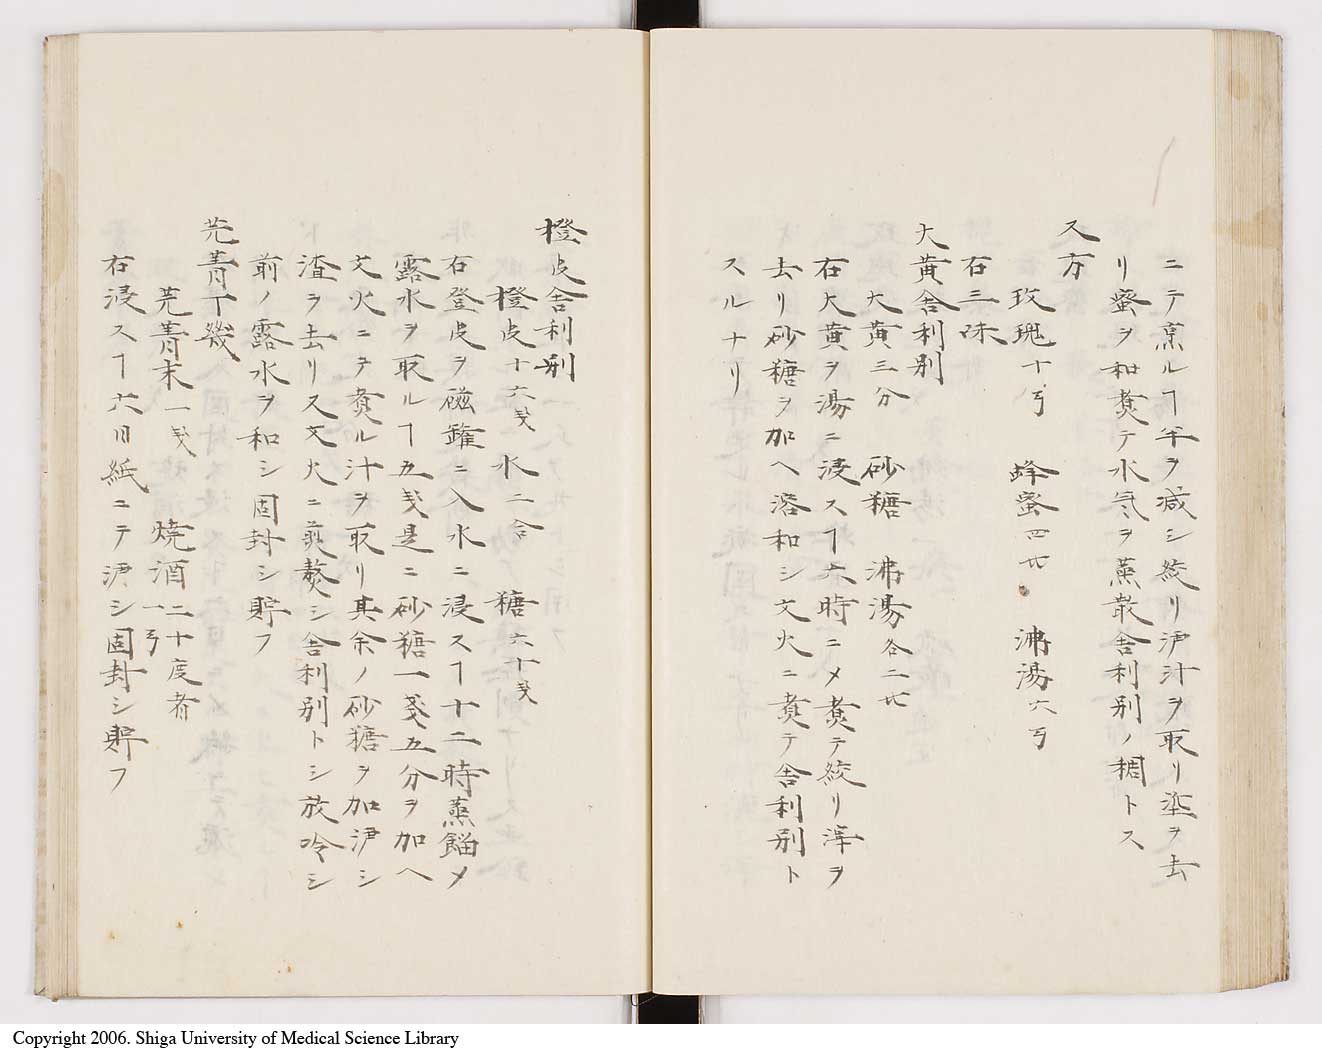 ニテ烹ルヿ半ヲ減シ絞リ沪汁ヲ取リ滓ヲ去
リ蜜ヲ和煑テ水気ヲ蒸散舎利別ノ稠トス
又方
玫瑰十ゟ 蜂蜜四廿 沸湯六ゟ
右三味
大黄舎利別
大黄三分 砂糖 沸湯各二廿
右大黄ヲ湯ニ浸スヿ六時ニメ煑テ絞リ滓ヲ
去リ砂糖ヲ加ヘ溶和シ文火ニ煑テ舎利別ト
スルナリ
橙皮舎利別
橙皮十六戔 水二合 糖六十戔
右登皮ヲ磁罐ニ入水ニ浸スヿ十二時蒸餾メ
露水ヲ取ルヿ五戔是ニ砂糖一戔五分ヲ加ヘ
文火ニテ煑ル汁ヲ取リ其余ノ砂糖ヲ加沪シ
渣ヲ去リ又文火ニ煎熬シ舎利別トシ放冷シ
前ノ露水ヲ和シ固封シ貯フ
芫菁丁幾
芫菁末一戔 焼酒二十度者一ゟ
右浸スヿ六日紙ニテ沪シ固封シ貯フ
Copyright 2006. Shiga University of Medical Science Library